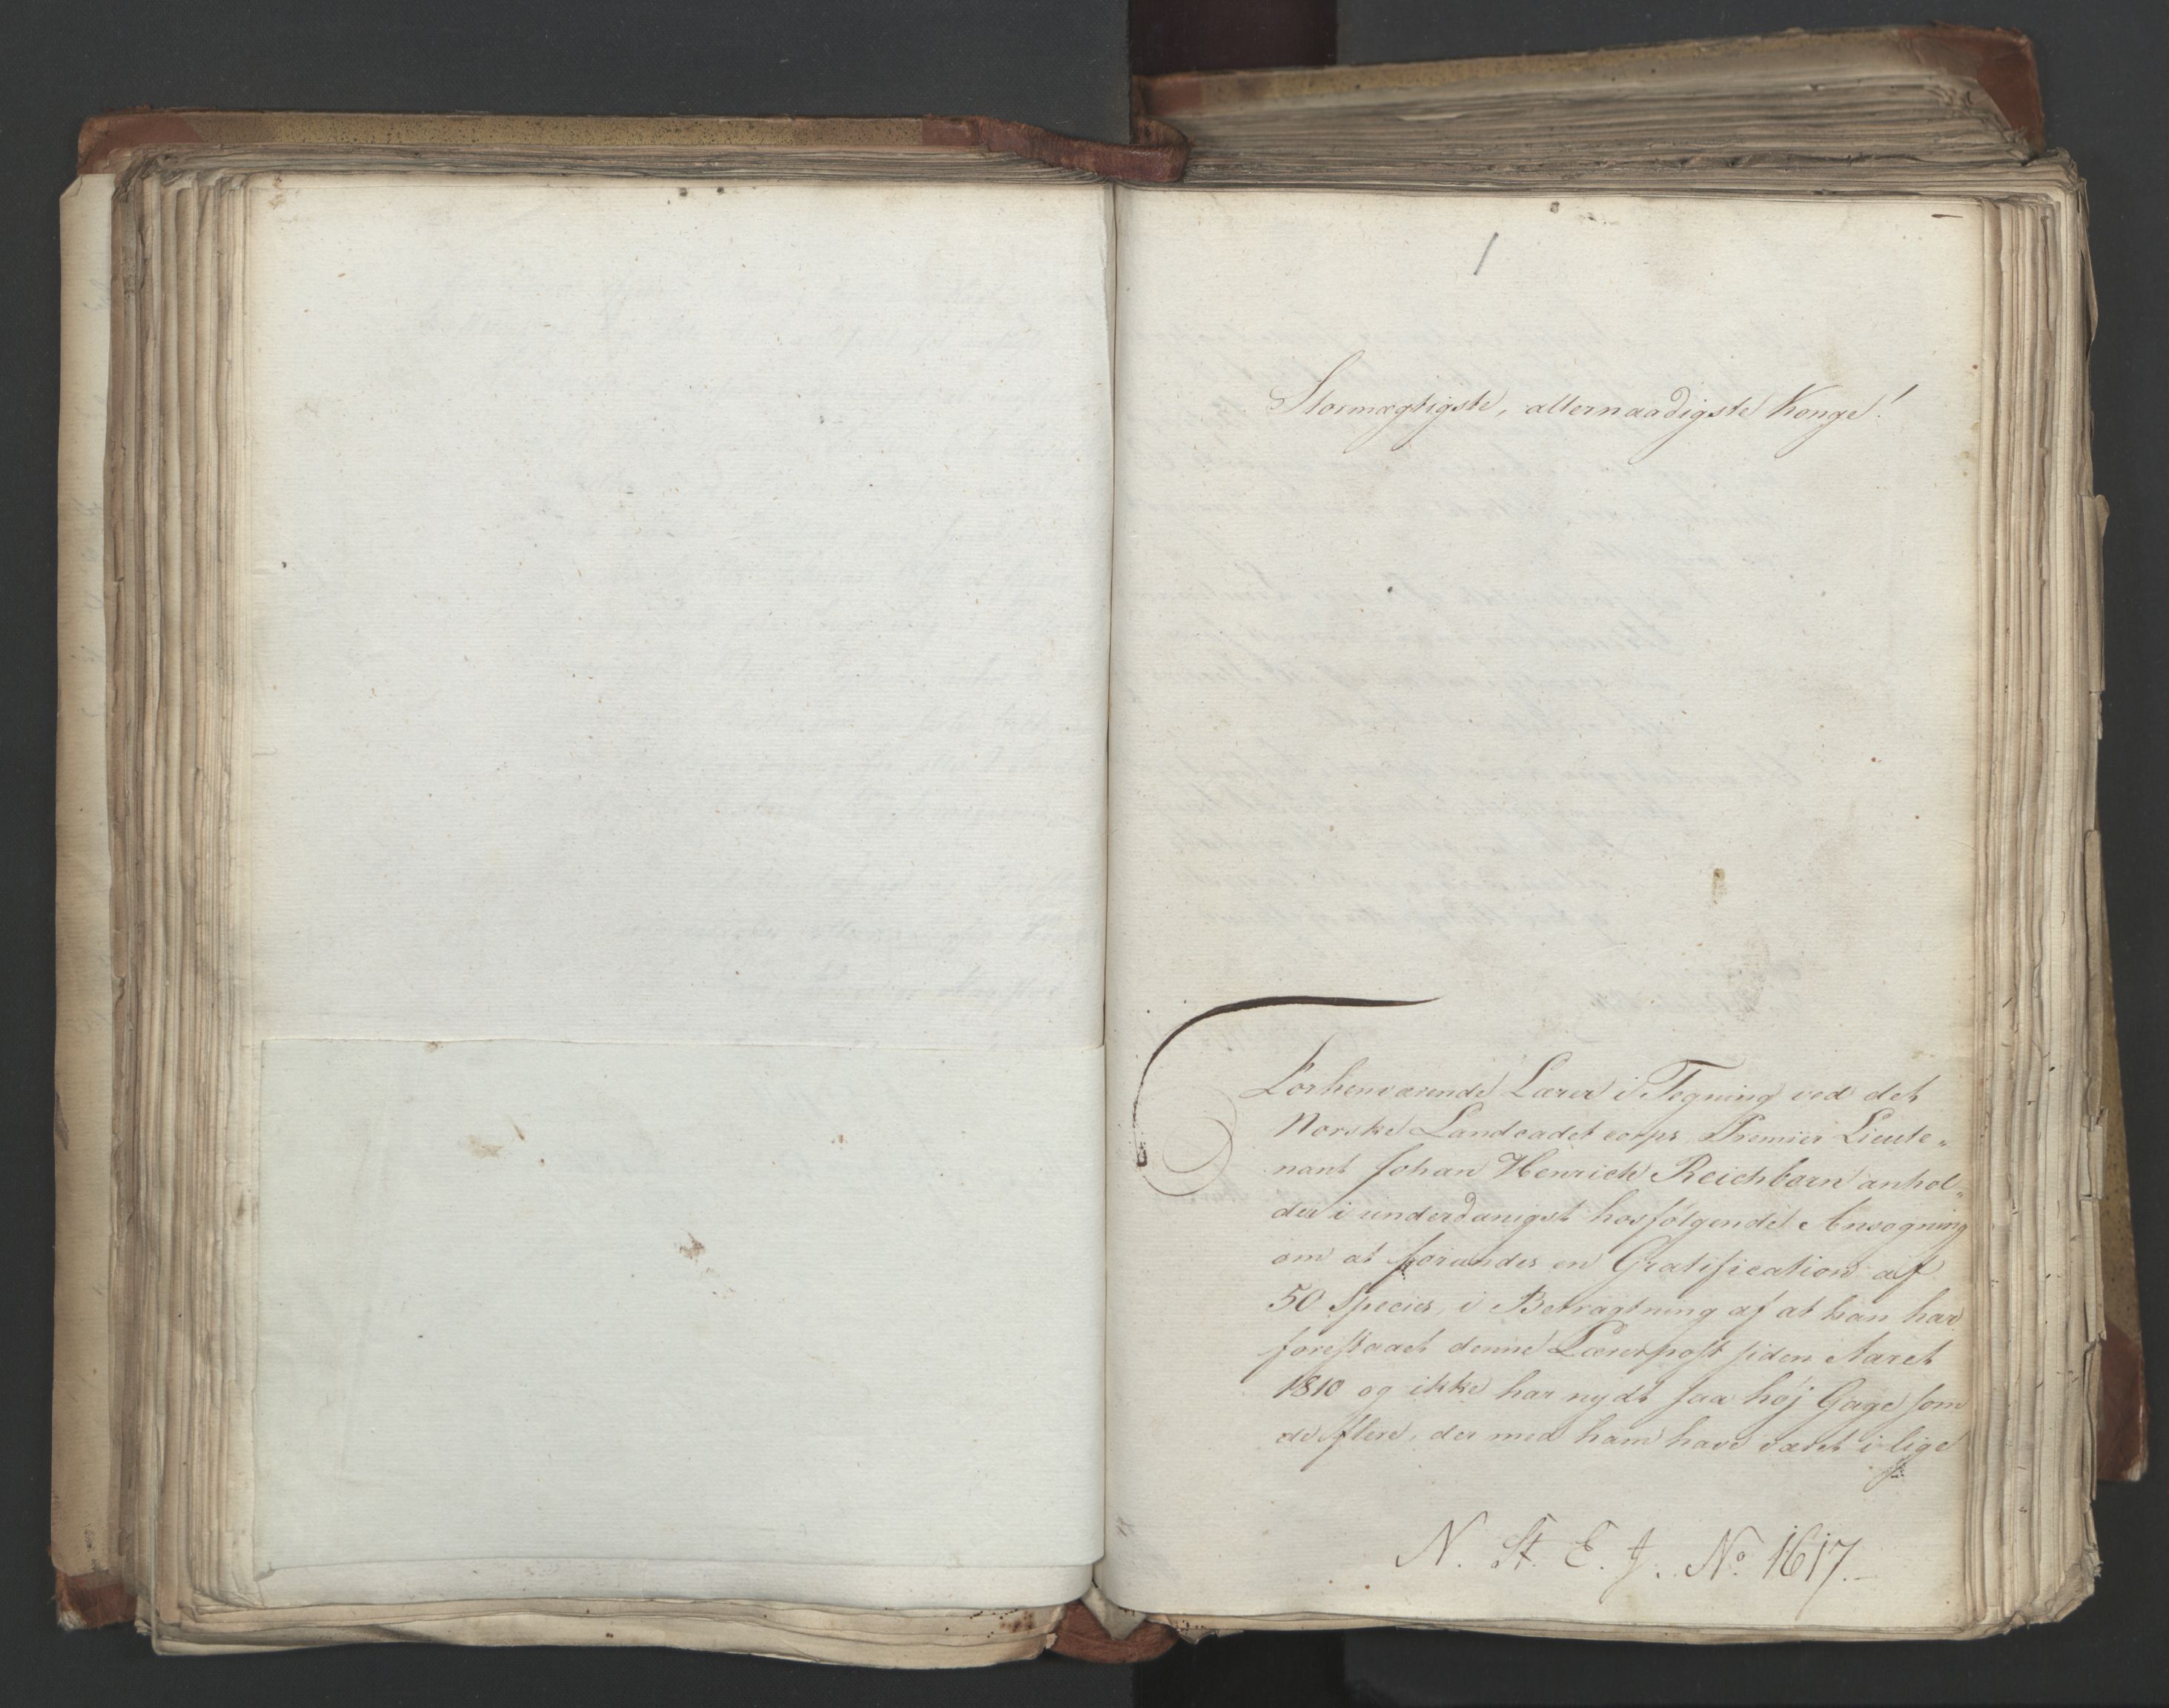 1
Stormægtigste, allernaadigste Konge!
Forhenværende Lærer i Tegning ved det
Norske Landcadet corps Premier Lieute„
nant Johan Henrich Reichborn anhol„
der i underdanigst hosfølgende Ansøgning
om at forundes en Gratification af
50 Species, i Betragtning af at han har
forestaaet denne Lærerpost siden Aaret
1810 og ikke har nydt saa høj Gage som
de flere, der med ham have været i lige
N. St. E. J. No 1617.